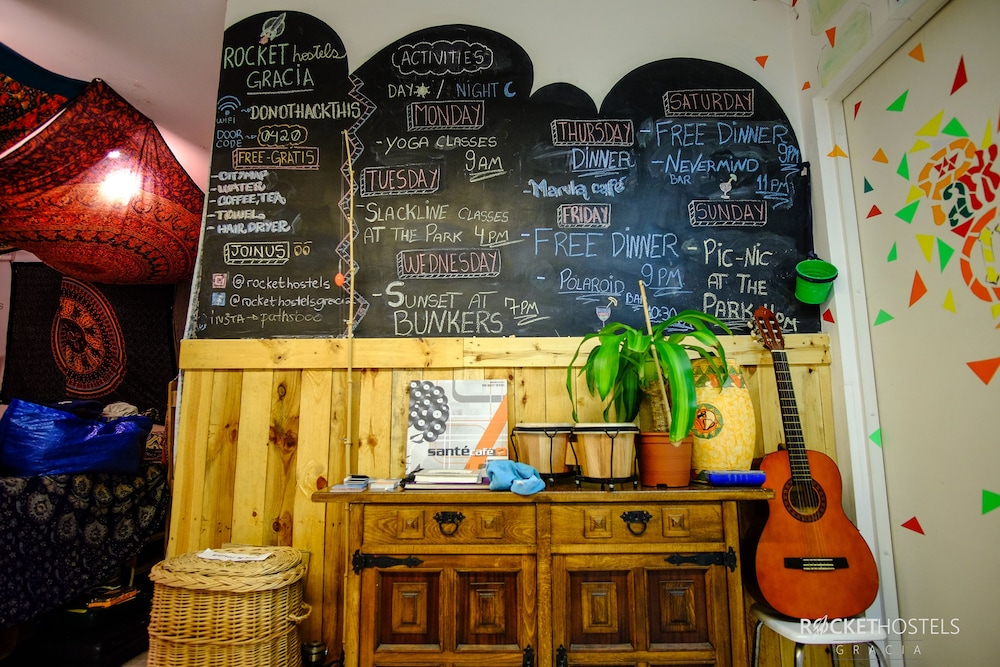 ROCKET hostels
GRACIA
WIFI
-DONOTHACKTHIS
DOOR
CODE
-0420
FREE-GRATIS
- CITYMAP
- WATER
- COFFEE, TEA
- TOWEL
- HAIR DRYER
JOIN US
@rockethostels
@rockethostelsgracia
(ACTIVITIES)
DAY / NIGHT
MONDAY
- YOGA CLASSES
9AM
TUESDAY
SLACKLINE CLASSES
AT THE PARK 4PM
WEDNESDAY
- SUNSET AT
BUNKERS 7PM
THURSDAY
DINNER
- Marula café
FRIDAY
- FREE DINNER
9PM
- POLAROID
BAR
SATURDAY
- FREE DINNER
9PM
- NEVERMIND
BAR
11PM
SUNDAY
- PIC-NIC
AT THE
PARK
santé café
ROCKETHOSTELS
GRACIA